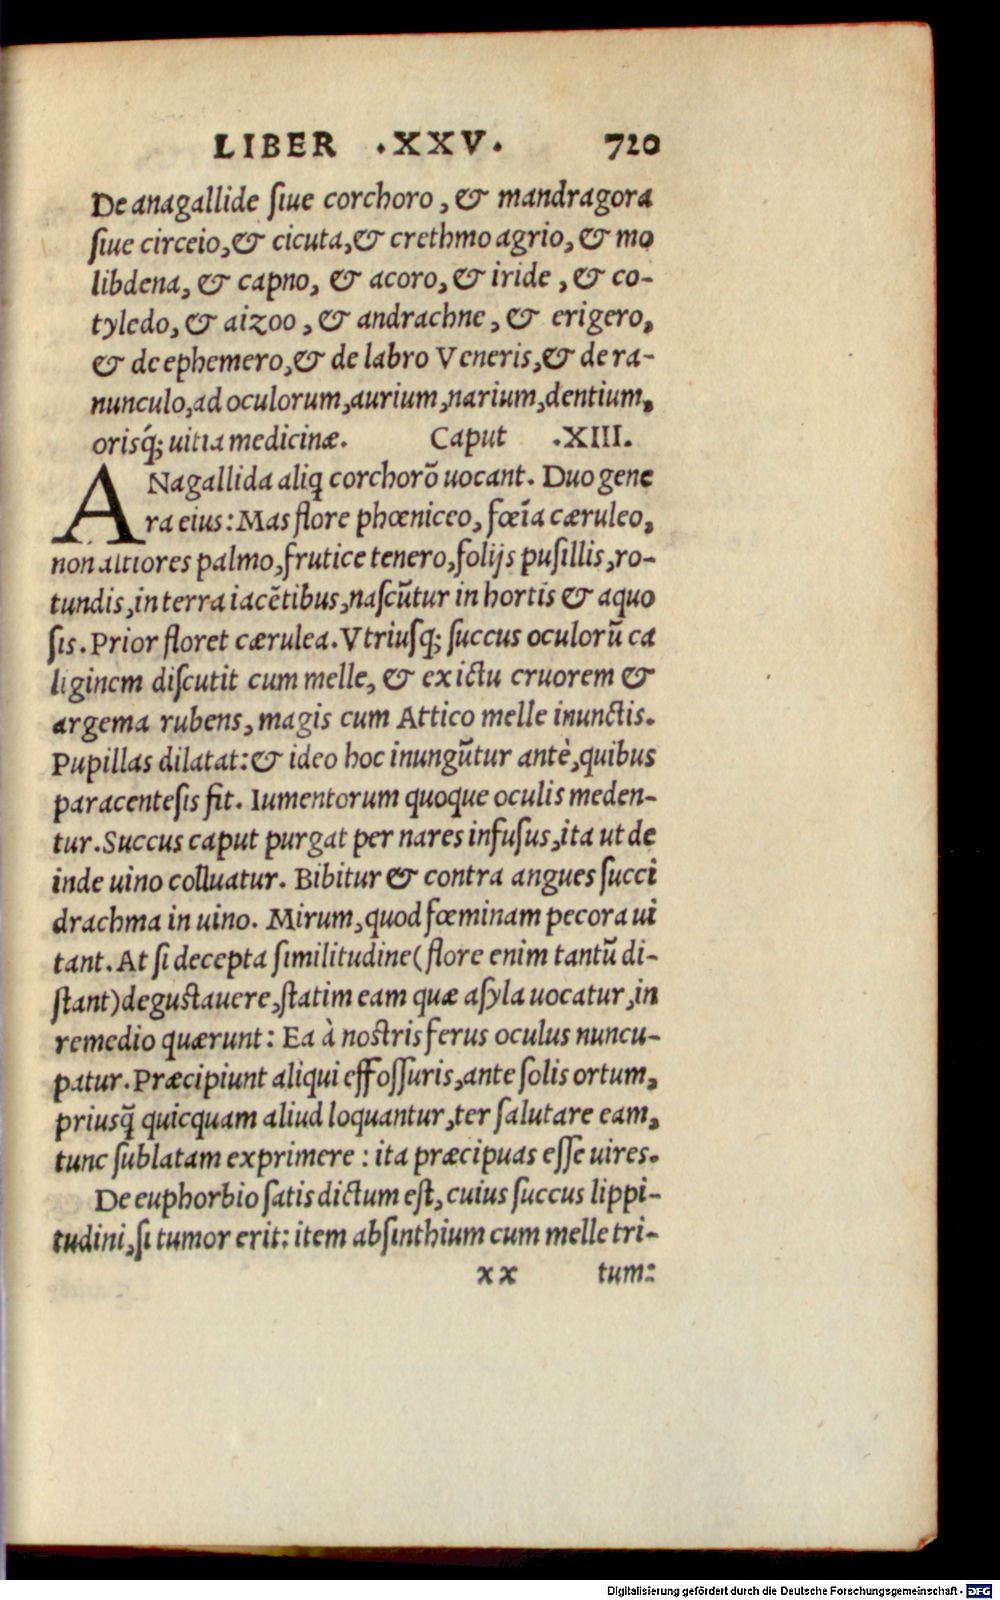 LIBER .XXV. 720
De anagallide ſiue corchoro, & mandragora
ſiue circeio, & cicuta, & crethmo agrio, & mo
libdena, & capno, & acoro, & iride, & co-
tyledo, & aizoo, & andrachne, & erigero,
& de ephemero, & de labro Veneris, & de ra-
nunculo, ad oculorum, aurium, narium, dentium,
orisq́; uitia medicinæ. Caput .XIII.
ANagallida aliq corchorõ uocant. Duo gene
ra eius: Mas flore phœniceo, fœĩa cæruleo,
non altiores palmo, frutice tenero, folijs puſillis, ro-
tundis, in terra iacẽtibus, naſcũtur in hortis & aquo
ſis. Prior floret cærulea. Vtriuſq; ſuccus oculorũ ca
liginem diſcutit cum melle, & ex ictu cruorem &
argema rubens, magis cum Attico melle inunctis.
Pupillas dilatat: & ideo hoc inungũtur antè, quibus
paracenteſis fit. Iumentorum quoque oculis meden-
tur. Succus caput purgat per nares infuſus, ita ut de
inde uino colluatur. Bibitur & contra angues ſucci
drachma in uino. Mirum, quod fœminam pecora ui
tant. At ſi decepta ſimilitudine (flore enim tantũ di-
ſtant) deguſtauere, ſtatim eam quæ aſyla uocatur, in
remedio quærunt: Ea à noſtris ferus oculus nuncu-
patur. Præcipiunt aliqui effoſſuris, ante ſolis ortum,
priusq̃ quicquam aliud loquantur, ter ſalutare eam,
tunc ſublatam exprimere: ita præcipuas eſſe uires.
De euphorbio ſatis dictum eſt, cuius ſuccus lippi-
tudini, ſi tumor erit: item abſinthium cum melle tri-
xx tum:
Digitalisierung gefördert durch die Deutsche Forschungsgemeinschaft - DFG